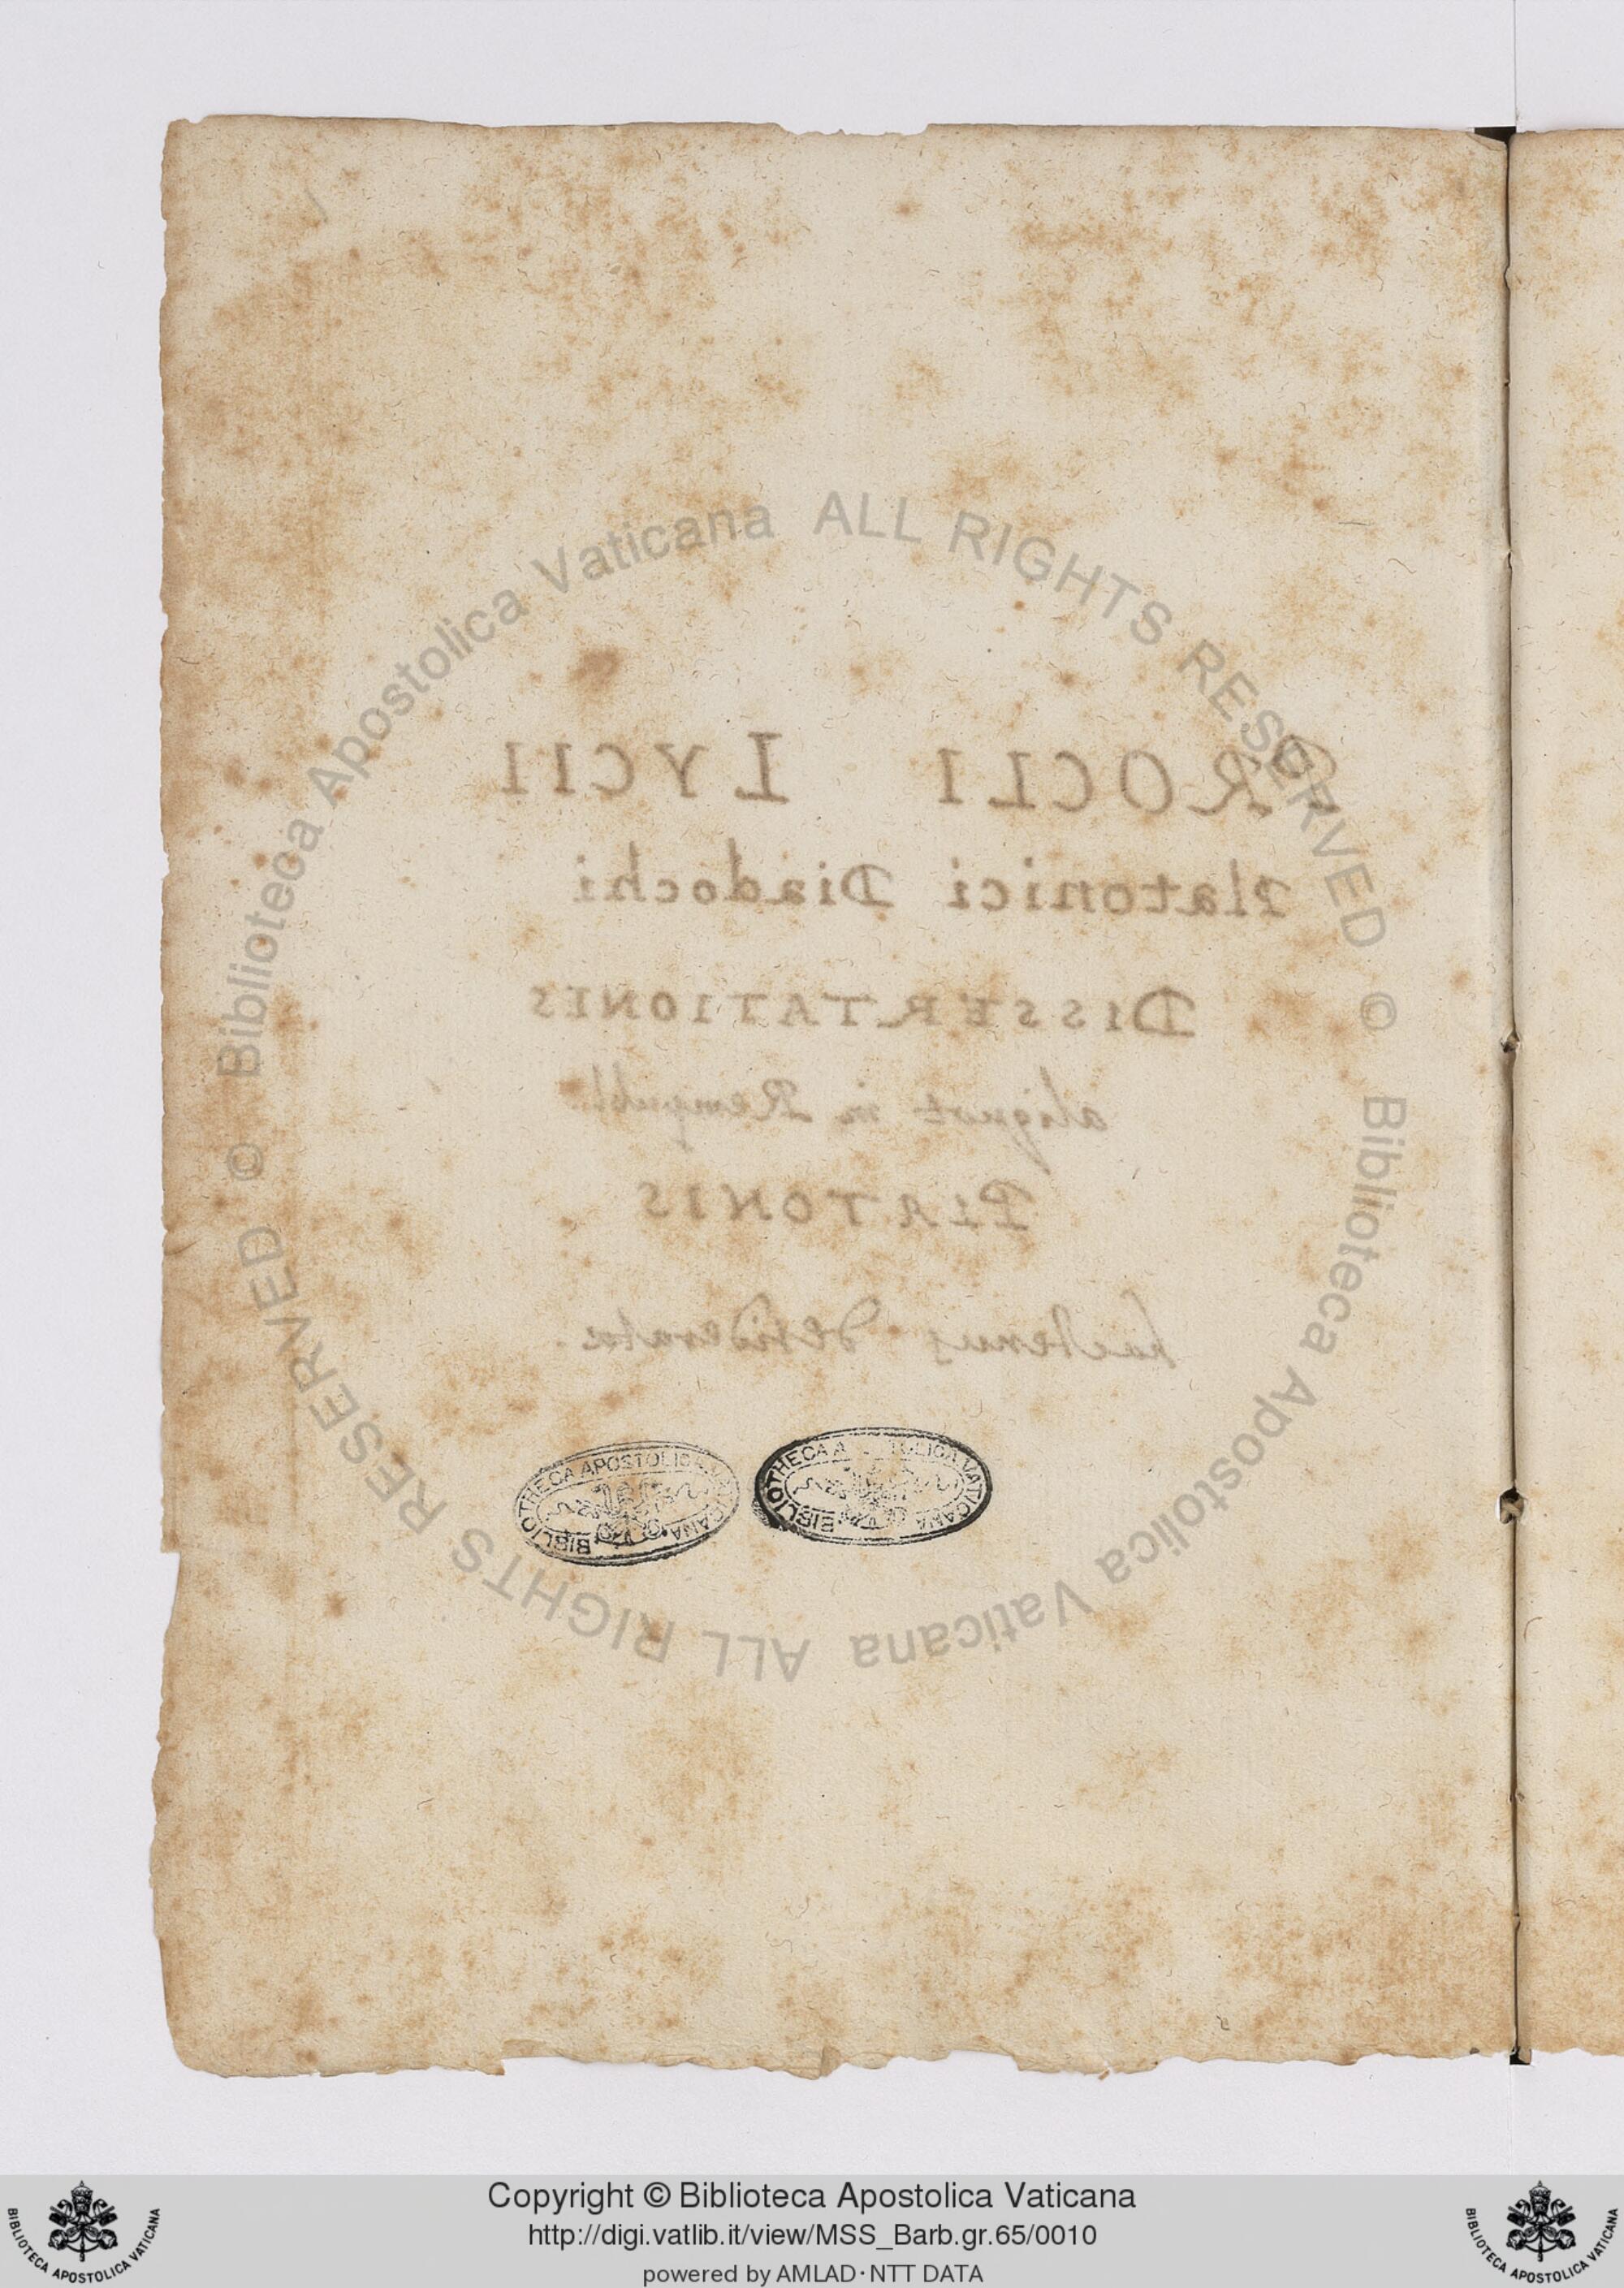 PROCLI LYCII
Platonici Diadochi
DISSERTATIONIS
aliquot in Rempubl.
PLATONIS
hactenus desideratae.
BIBLIOTHECA APOSTOLICA VATICANA
BIBLIOTHECA APOSTOLICA VATICANA
Biblioteca Apostolica Vaticana ALL RIGHTS RESERVED ©
Biblioteca Apostolica Vaticana ALL RIGHTS RESERVED ©
Copyright © Biblioteca Apostolica Vaticana
http://digi.vatlib.it/view/MSS_Barb.gr.65/0010
powered by AMLAD·NTT DATA
BIBLIOTECA APOSTOLICA VATICANA
BIBLIOTECA APOSTOLICA VATICANA